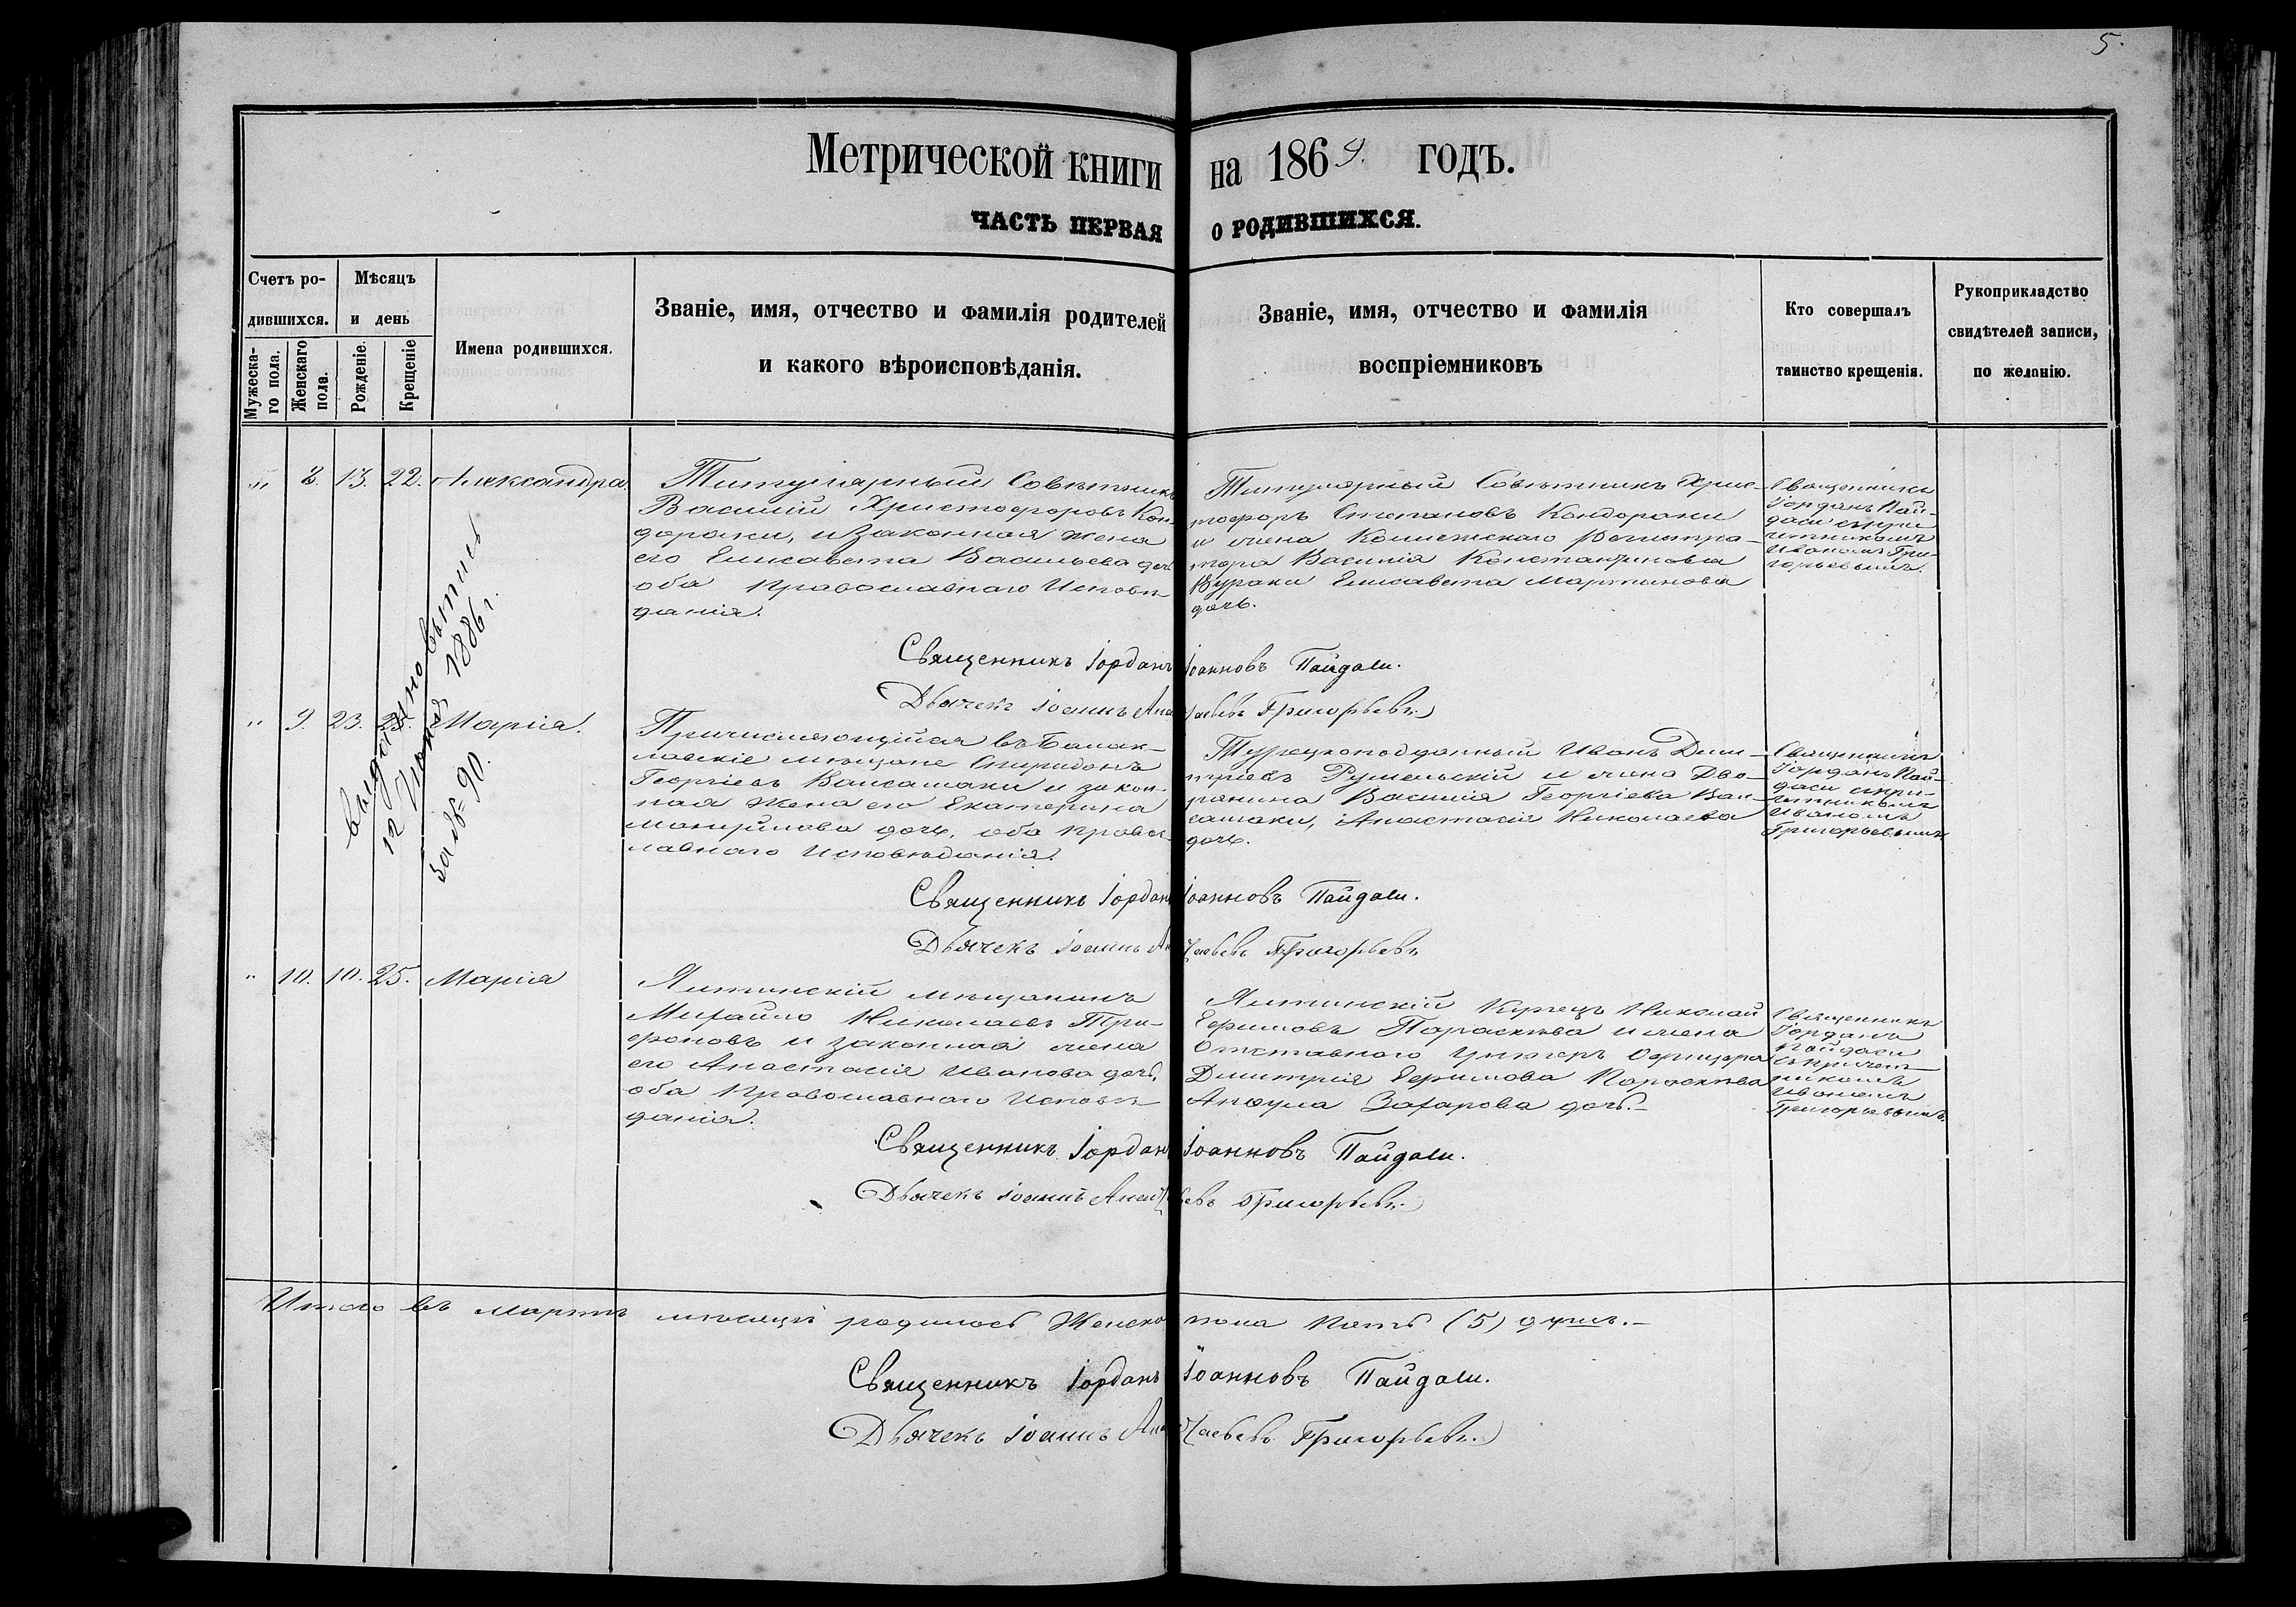 5.
Метрической книги на 1869. годъ.
ЧАСТЬ ПЕРВАЯ О РОДИВШИХСЯ.
Счетъ ро-
дившихся.
Мужеска-
го пола.
Женскаго
пола.
Мѣсяцъ
и день
Рожденіе.
Крещеніе
Имена родившихся.
Званіе, имя, отчество и фамилія родителей
и какого вѣроисповѣданія.
Званіе, имя, отчество и фамилія
воспріемниковъ
Кто совершалъ
таинство крещенія.
Рукоприкладство
свидѣтелей записи,
по желанію.
„ 8. 13. 22. Александра.
Титулярный Совѣтникъ
Василій Христофоровъ Кон-
дораки, и законная жена
его Елисавета Васильева дочь
оба Православнаго Исповѣ-
данія.
Титулярный Совѣтникъ Хрис-
тофоръ Степановъ Кондораки
и жена Коллежскаго Регистра-
тора Василія Константинова
Вураки Елисавета Мартинова
дочь.
Священникъ
Іорданъ Пай-
даси съ при-
четникомъ
Иваномъ Гри-
горьевымъ.
Священникъ Іорданъ Іоанновъ Пайдаси.
Дьячекъ Іоаннъ Григорьевъ.
Выдано метрич
12 Іюня 1886 г.
за № 90.
„ 9. 23. 25. Марія.
Причисляющійся въ Балак-
лавскіе мѣщане Спиридонъ
Георгіевъ Ваксамаки и закон-
ная жена его Екатерина
дочь, оба Правос-
лавнаго Исповѣданія.
Турецкоподданный Иванъ Дми-
тріевъ Румельскій и жена Дво-
рянина Василія Георгіева Вак-
самаки, Анастасія Николаева
дочь.
Священникъ
Іорданъ Пай-
даси съ при-
четникомъ
Иваномъ
Григорьевымъ
Священникъ Іорданъ Іоанновъ Пайдаси.
Дьячекъ Іоаннъ Григорьевъ
„ 10. 10. 25. Марія
Ялтинскій мѣщанинъ
Михайло Николаевъ Три-
фоновъ и законная жена
его Анастасія Иванова дочь,
оба Православнаго Исповѣ-
данія.
Ялтинскій Купецъ Николай
Ефимовъ Параскева и жена
Отставного Унтеръ Офицера
Димитрія Ефимова Параскева
Захарова дочь.–
Священникъ
Іорданъ
Пайдаси
съ причет-
никомъ
Иваномъ
Григорьевымъ.
Священникъ Іорданъ Іоанновъ Пайдаси.
Дьячекъ Іоаннъ Григорьевъ.
Итого въ Мартѣ мѣсяцѣ родилось Женско пола Пять (5) душъ.–
Священникъ Іорданъ Іоанновъ Пайдаси.
Дьячекъ Іоаннъ Григорьевъ.